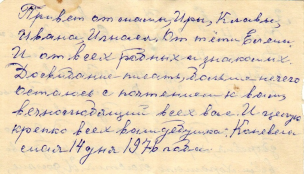 Привет от мамы, Иры, Клавы,
Ивана, Игната, От тёти Евгени.
И от всех родных и знакомых.
Досвидание писать, больше нечего
остаюсь с почтением к вам
вечнолюбящий всех вас. И целую
крепко всех вам дедушка:
мая 14 дня 1970 года